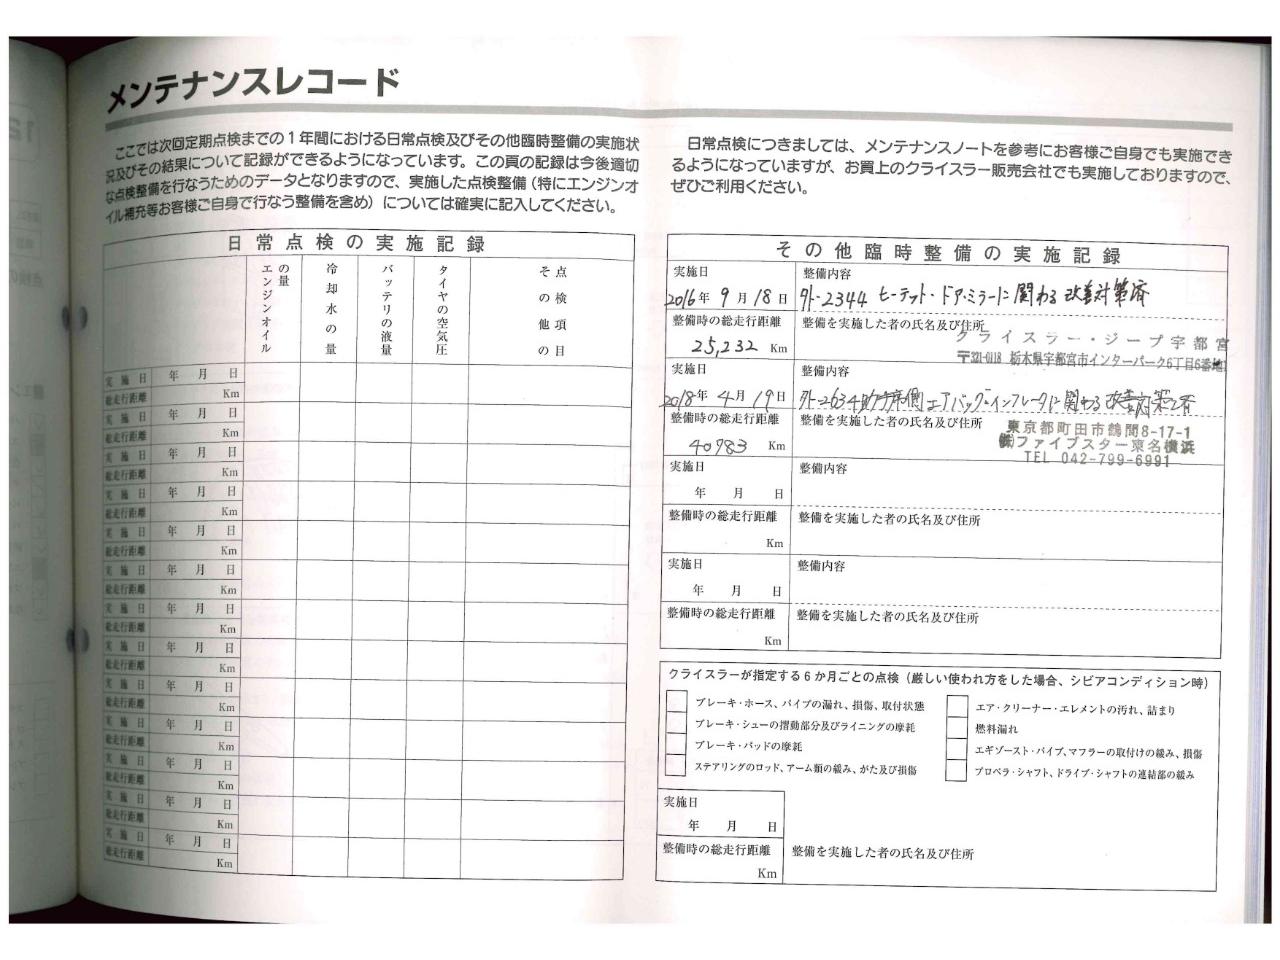 メンテナンスレコード
ここでは次回定期点検までの1年間における日常点検及びその他臨時整備の実施状
況及びその結果について記録ができるようになっています。この頁の記録は今後適切
な点検整備を行なうためのデータとなりますので、実施した点検整備（特にエンジンオ
イル補充等お客様ご自身で行なう整備を含め）については確実に記入してください。
日常点検の実施記録
エンジンオイルの量
冷却水の量
バッテリの液量
タイヤの空気圧
その他の
点検項目
実施日 年 月 日
総走行距離 Km
実施日 年 月 日
総走行距離 Km
実施日 年 月 日
総走行距離 Km
実施日 年 月 日
総走行距離 Km
実施日 年 月 日
総走行距離 Km
実施日 年 月 日
総走行距離 Km
実施日 年 月 日
総走行距離 Km
実施日 年 月 日
総走行距離 Km
実施日 年 月 日
総走行距離 Km
実施日 年 月 日
総走行距離 Km
実施日 年 月 日
総走行距離 Km
実施日 年 月 日
総走行距離 Km
実施日 年 月 日
総走行距離 Km
日常点検につきましては、メンテナンスノートを参考にお客様ご自身でも実施でき
るようになっていますが、お買上のクライスラー販売会社でも実施しておりますので、
ぜひご利用ください。
その他臨時整備の実施記録
実施日
2016年 9月 18日
整備内容
外-2344 ヒーテット・ドア・ミラーに関わる改善対策済
整備時の総走行距離
25,232 Km
整備を実施した者の氏名及び住所
クライスラー・ジープ宇都宮
〒321-0118 栃木県宇都宮市インターパーク6丁目6番地1
実施日
2018年 4月 19日
整備内容
外-2634助手席側エアバッグ・インフレータに関わる改善対策済
整備時の総走行距離
40983 Km
整備を実施した者の氏名及び住所
東京都町田市鶴間8-17-1
㈱ファイブスター東名横浜
TEL 042-799-6991
実施日
年 月 日
整備内容
整備時の総走行距離
Km
整備を実施した者の氏名及び住所
実施日
年 月 日
整備内容
整備時の総走行距離
Km
整備を実施した者の氏名及び住所
クライスラーが指定する6か月ごとの点検（厳しい使われ方をした場合、シビアコンディション時）
ブレーキ・ホース、パイプの漏れ、損傷、取付状態
ブレーキ・シューの摺動部分及びライニングの摩耗
ブレーキ・パッドの摩耗
ステアリングのロッド、アーム類の緩み、がた及び損傷
エア・クリーナー・エレメントの汚れ、詰まり
燃料漏れ
エギゾースト・パイプ、マフラーの取付けの緩み、損傷
プロペラ・シャフト、ドライブ・シャフトの連結部の緩み
実施日
年 月 日
整備時の総走行距離
Km
整備を実施した者の氏名及び住所